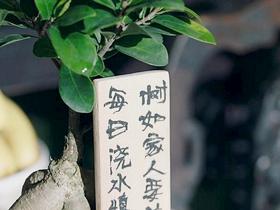 树如家人要
每日浇水